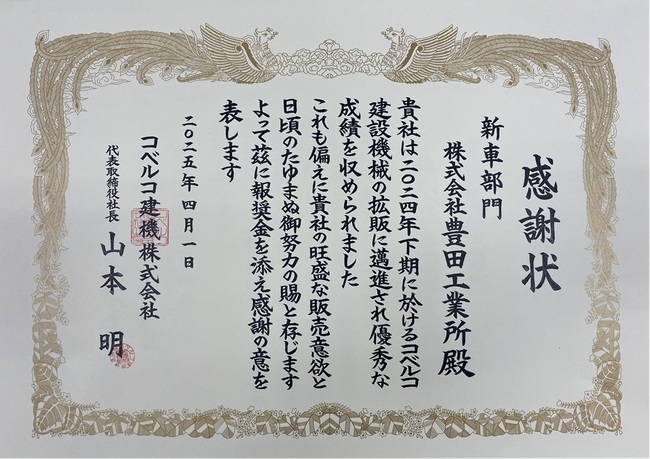 感謝状
新車部門
株式会社豊田工業所殿
貴社は二〇二四年下期に於けるコベルコ
建設機械の拡販に邁進され優秀な
成績を収められました
これも偏えに貴社の旺盛な販売意欲と
日頃のたゆまぬ御努力の賜と存じます
よって茲に報奨金を添え感謝の意を
表します
二〇二五年四月一日
コベルコ建機株式会社
代表取締役社長 山本 明